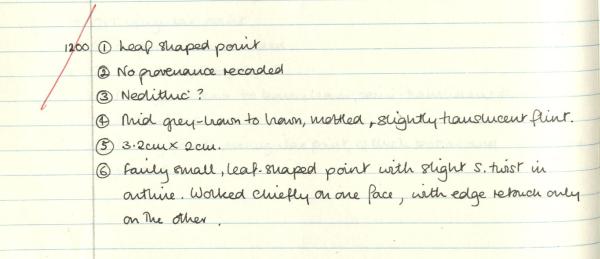 1200 ① Leaf shaped point
② No provenance recorded
③ Neolithic ?
④ Mid grey-brown to brown, mottled, slightly translucent flint.
⑤ 3.2cm x 2cm.
⑥ Fairly small, leaf-shaped point with slight S. twist in
outline. Worked chiefly on one face, with edge retouch only
on the other.